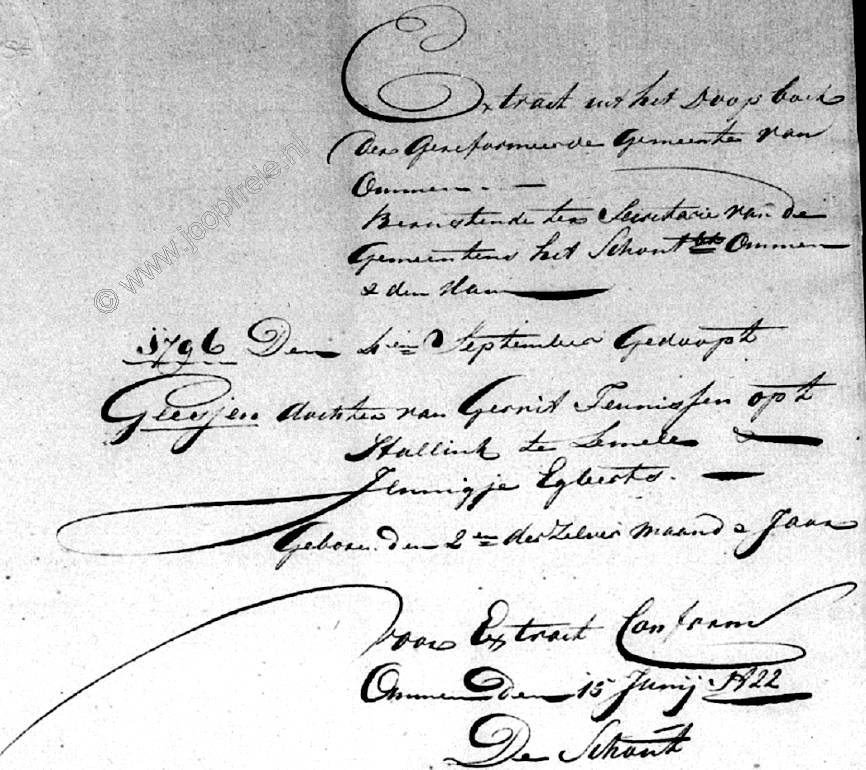 Extract uit het Doop boek
der Gereformeerde Gemeente van
Ommen. —
Berustende ter Secretarie van de
Gemeentens het Schout Ommen
& den Ham
1796 Den 4en September Gedoopt
Geesjen dochter van Gerrit Teunissen op't
Stallink te Lemele &
Jennigje Egberts. —
Geboren den 2en derzelver maand & Jaar
Voor Extract Conform
Ommen den 15 Junij 1822
De Schout
© www.joopfreie.nl